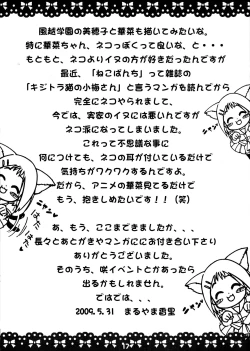 風越学園の美穂子と華菜も描いてみたいな。
特に華菜ちゃん、ネコっぽくって良いな、と・・・
もともと、ネコよりイヌの方が好きだったんですが
最近、「ねこぱんち」って雑誌の
「キジトラ猫の小梅さん」と言うマンガも読んでから
完全にネコやられまして、
今では、実家のイヌには悪いんですが
ネコ派になってしまいました。
これって不思議な事に
何につけても、ネコの耳が付いているだけで
気持ちがワクワクするんですよ。
だから、アニメの華菜見てるだけで
もう、抱きしめたいです！！（笑）
あ、もう、ここまできましたか、、、
長々とあとがきやマンガにお付き合い下さり
ありがとうございました。
そのうち、咲イベントとかあったら
出るかもしれません。
ではでは、、、
2009.5.31 まるやま香里
ニャン
ニャン
17